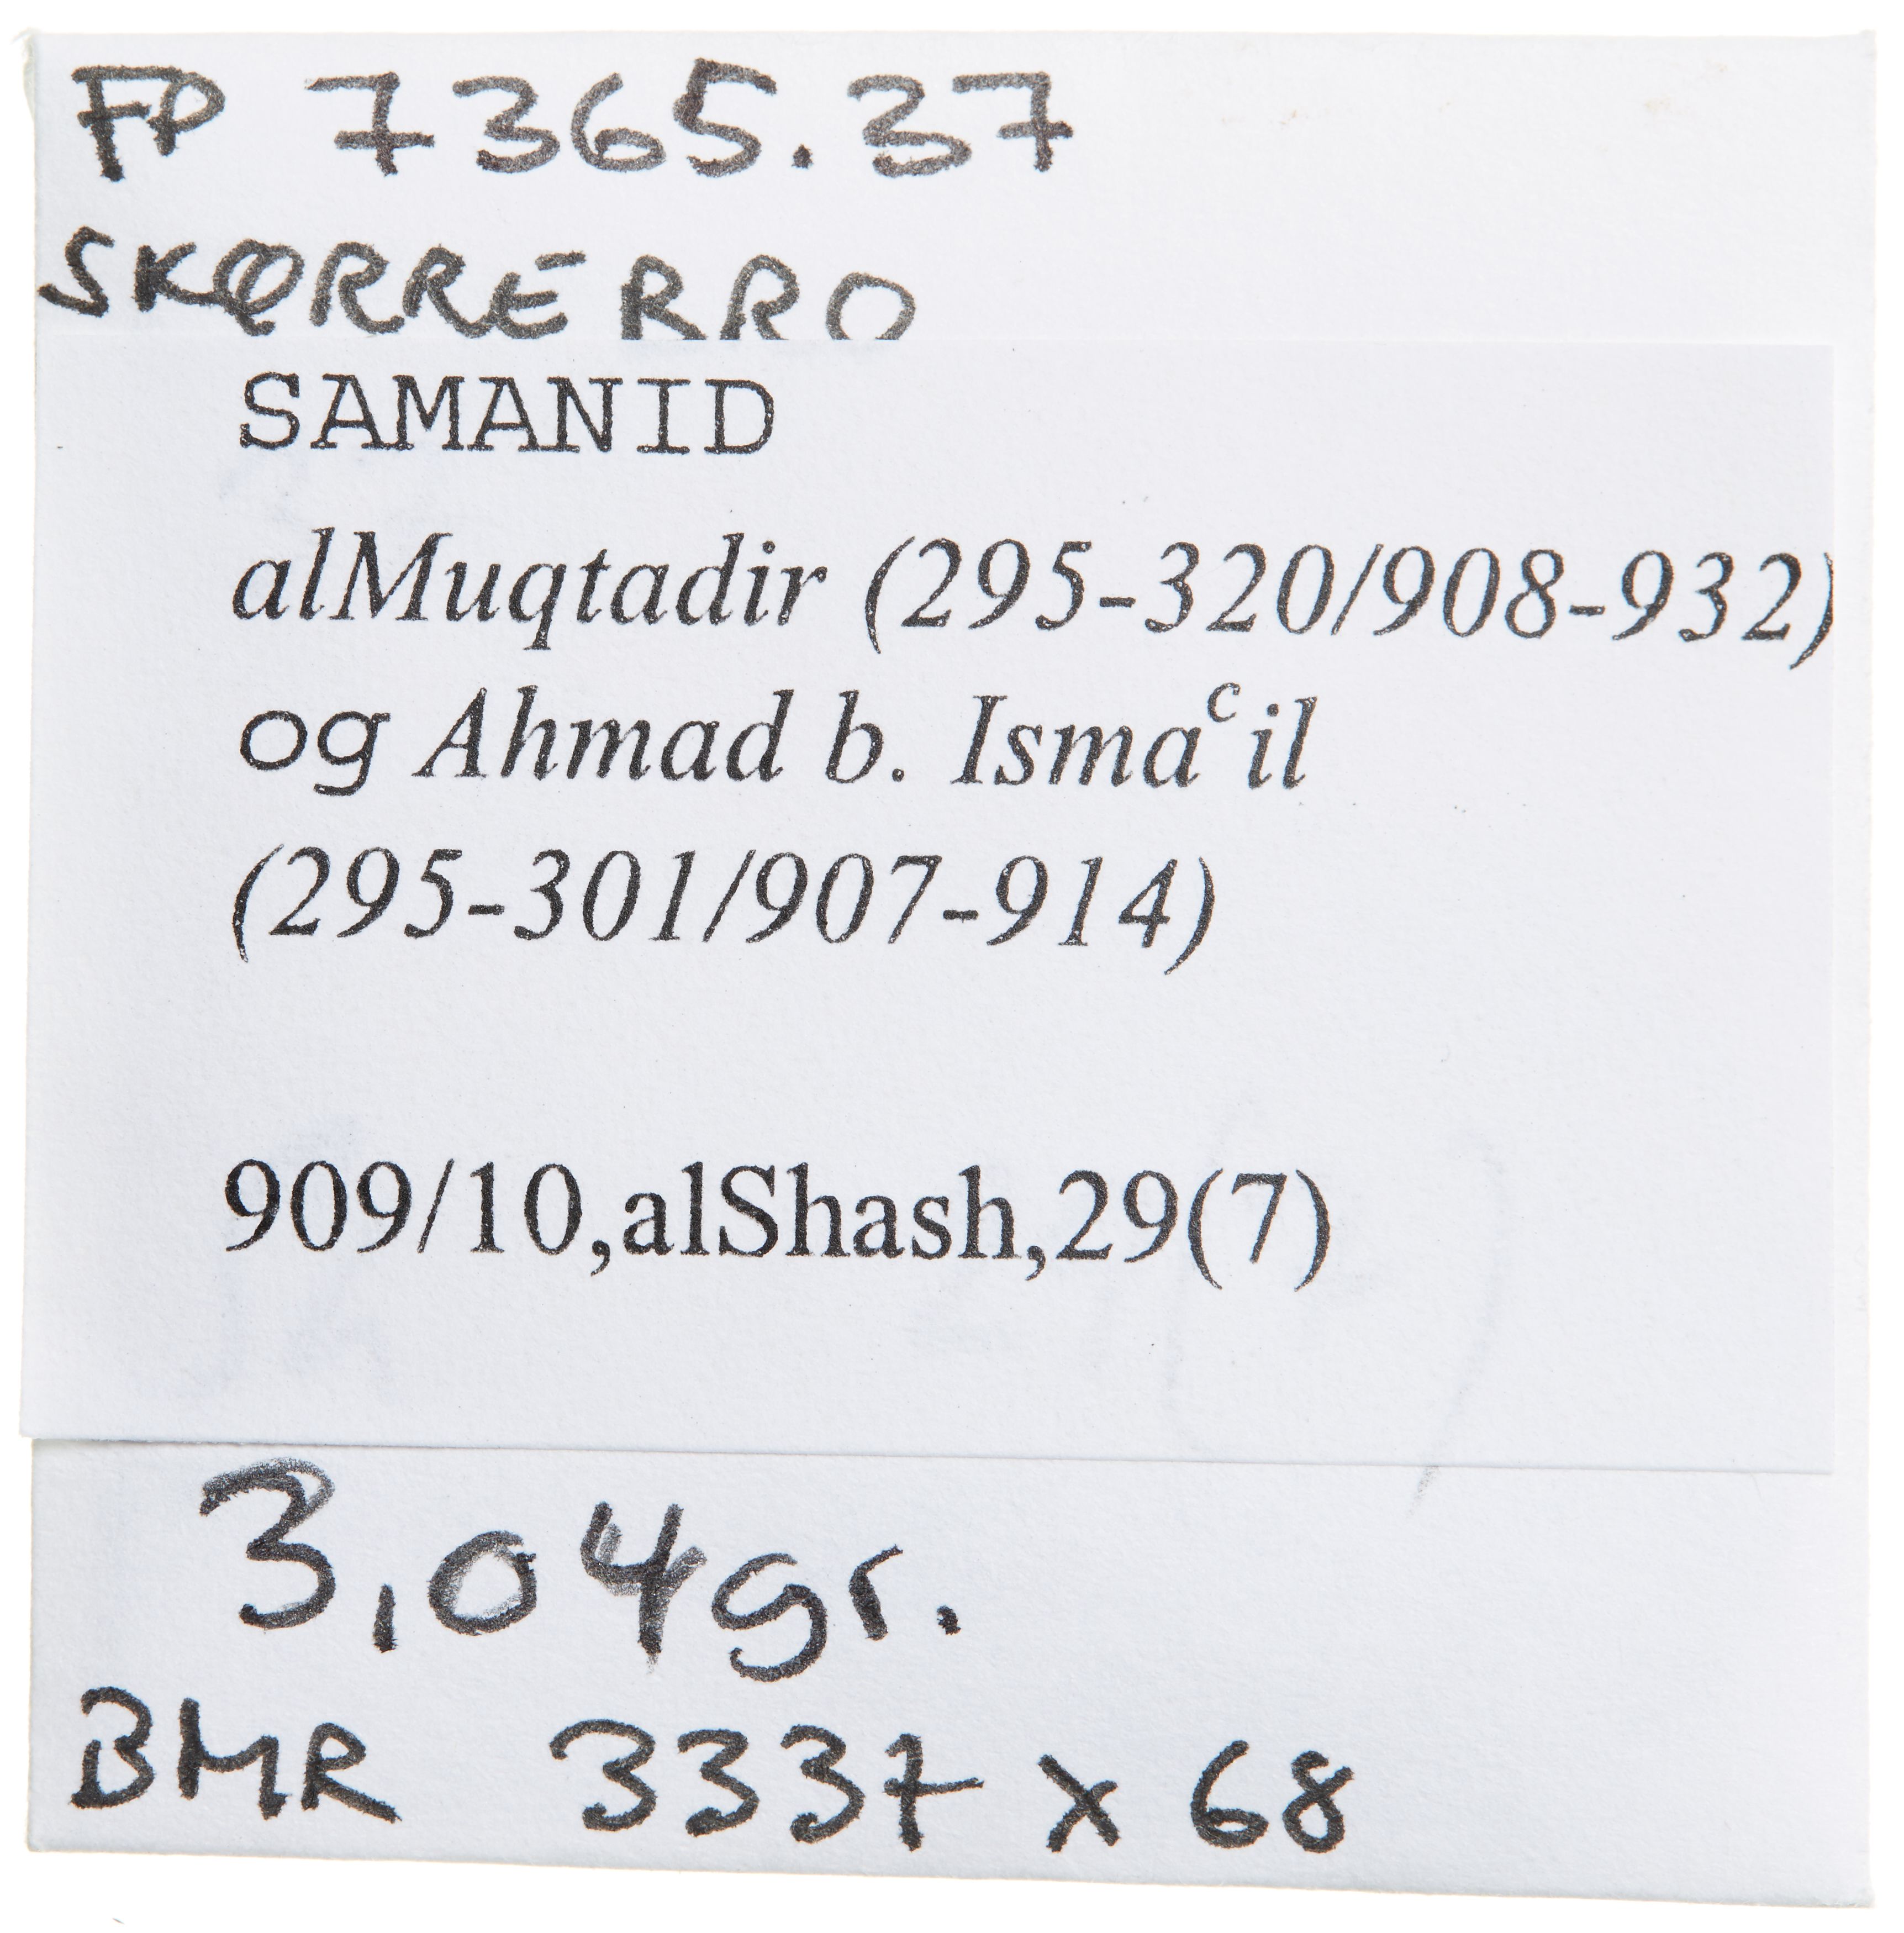 FP 7365.37
SKØRRERRO
SAMANID
alMuqtadir (295-320/908-932)
og Ahmad b. Ismaᶜil
(295-301/907-914)
909/10,alShash,29(7)
3,04gr.
BMR 3337 x 68